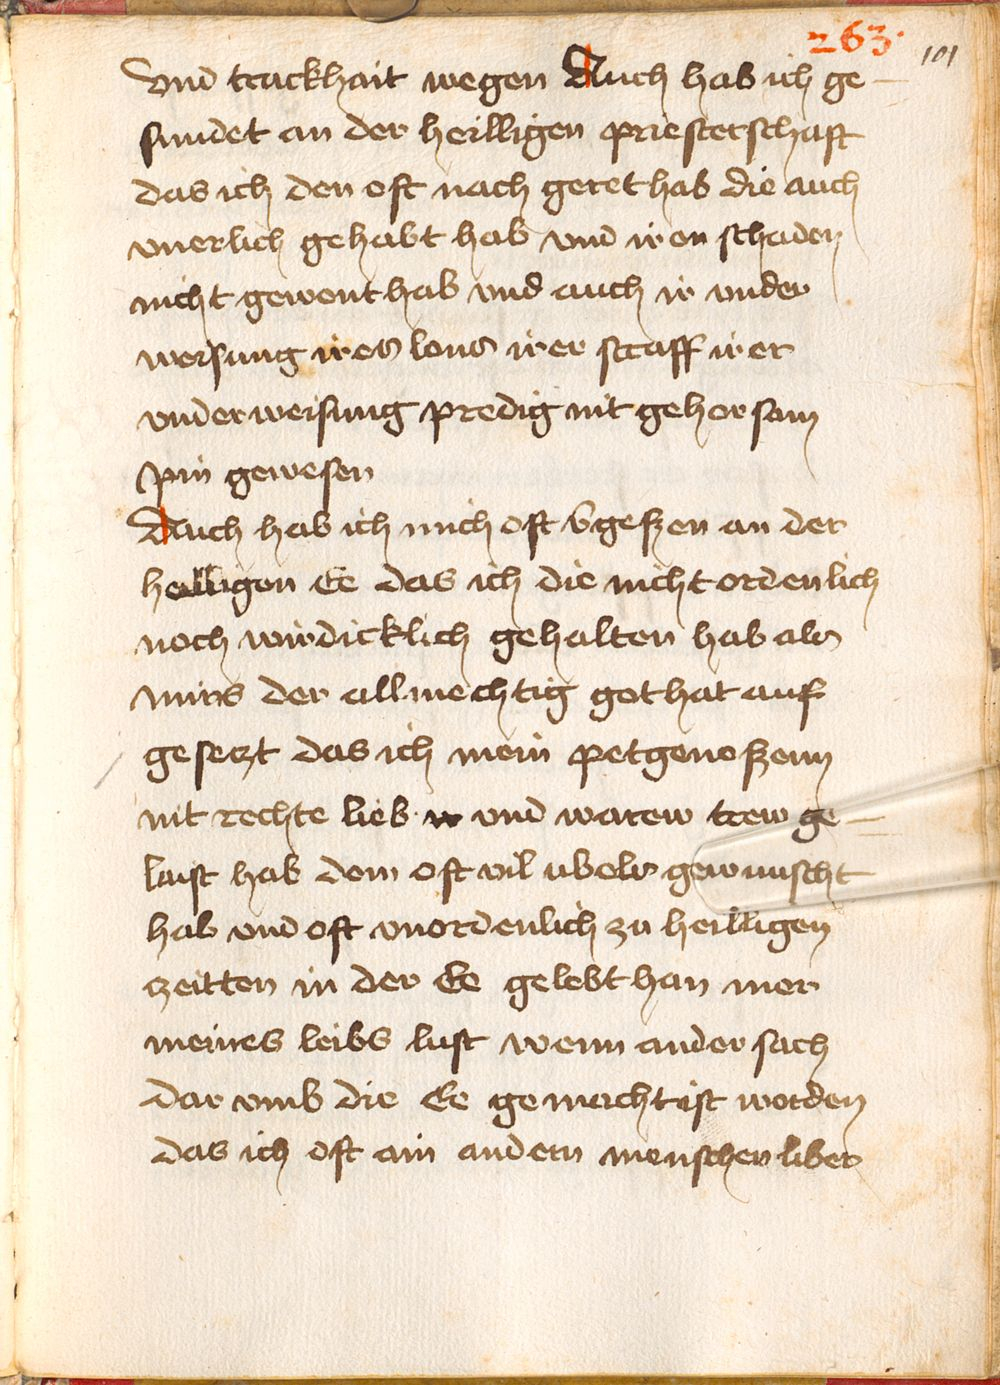 263.
101
vnd trackhait wegen Auch hab ich ge-
sundet an der heilligen priesterschaft
das ich den oft nach geret hab die auch
vnerlich gehabt hab vnd iren schaden
nicht gewent hab vnd auch ir vnder
weisung ires lons irer straff irer
vnderweisung predig nit gehorsam
pin gewesen
Auch hab ich mich oft vergeßen an der
heilligen Ee das ich die nicht ordenlich
noch wirdicklich gehalten hab als
mirs der allmechtig got hat auf
gesetzt das ich mein petgenoßenn
nit rechte lieb vnd warew trew ge-
laist hab dem oft vil vbels gewunscht
hab vnd oft vnordenlich zu heilligen
zeitten in der Ee gelebt han mer
meines leibs lust wenn ander sach
dar vmb die Ee gemacht ist worden
das ich oft ain andern menschen liber